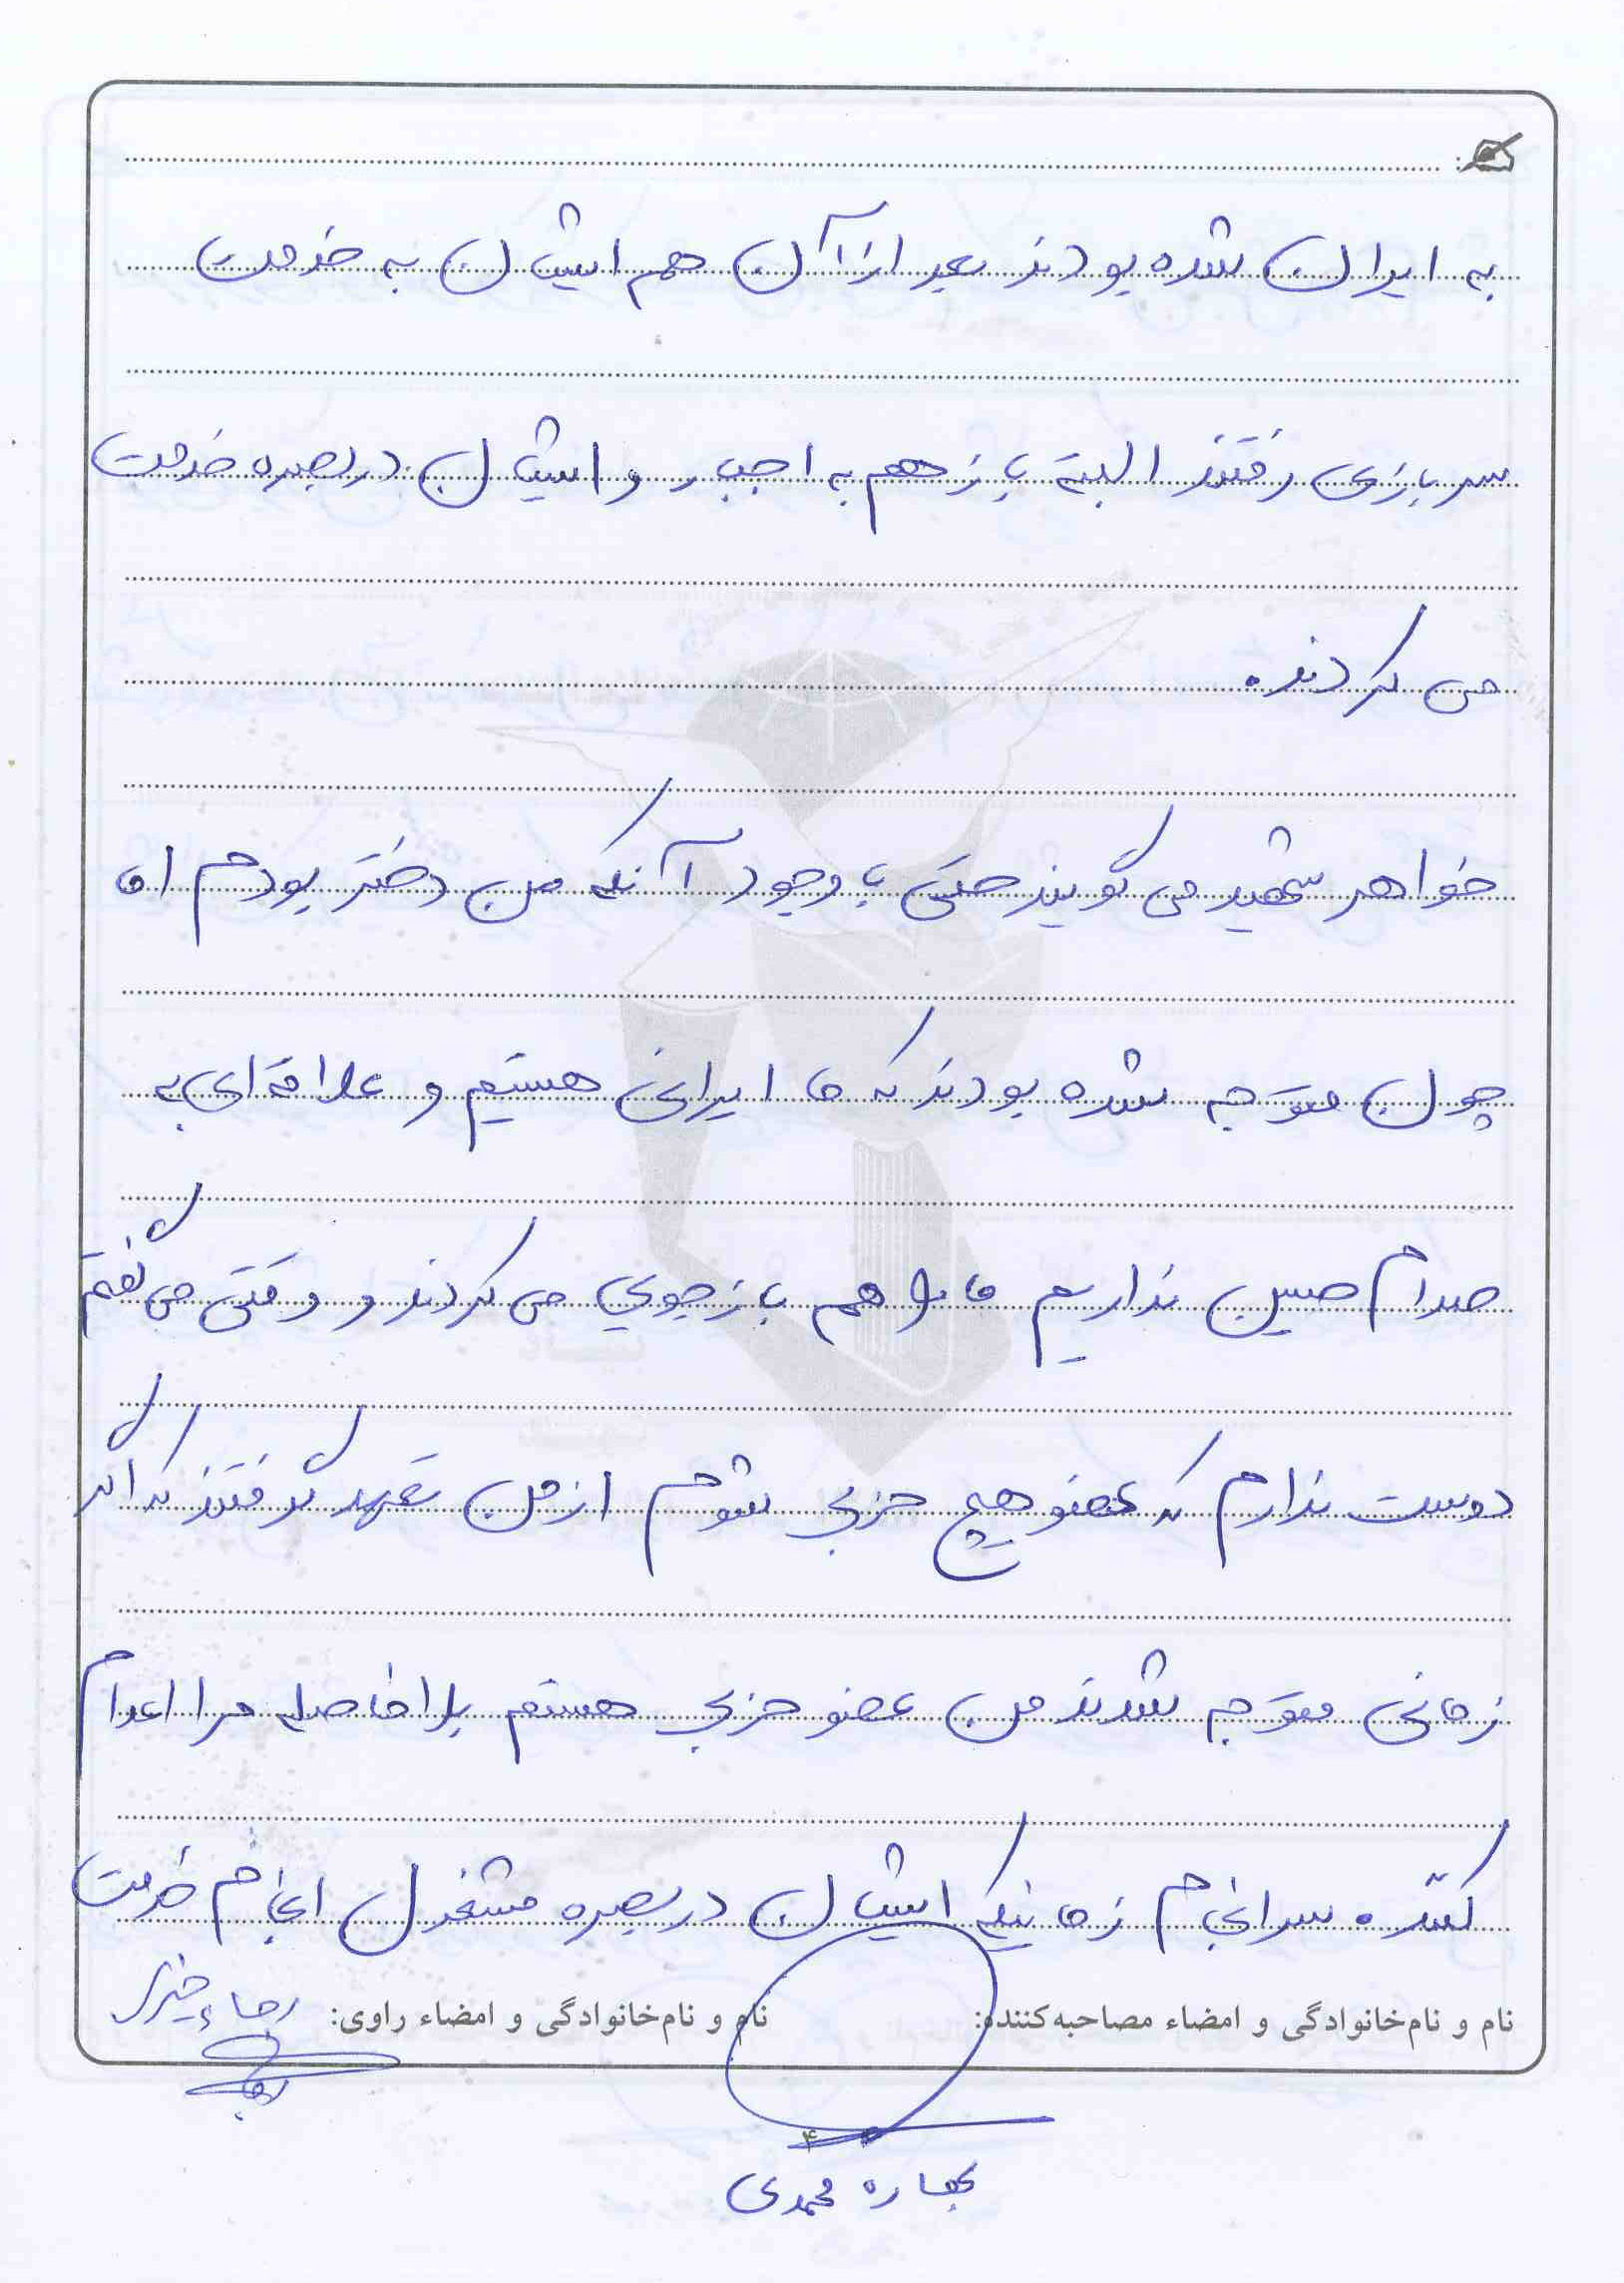 به ایران شده بودند بعد از آن هم ایشان به خدمت
سربازی رفتند البته باز هم به اجبار و ایشان در بصره خدمت
می کردند.
خواهر شهید می گویند حتی با وجود آنکه من دختر بودم اما
چون متوجه شده بودند که ما ایرانی هستیم و علاقه ای به
صدام حسین نداریم ما را هم بازجویی می کردند و وقتی می گفتم
دوست ندارم که عضو هیچ حزبی شوم از من تعهد گرفتند که اگر
زمانی متوجه شدند من عضو حزبی هستم بلافاصله مرا اعدام
کنند. سرانجام زمانیکه ایشان در بصره مشغول انجام خدمت
نام و نام‌خانوادگی و امضاء مصاحبه‌کننده: نام و نام‌خانوادگی و امضاء راوی: رجاء
۴
بهاره محمدی